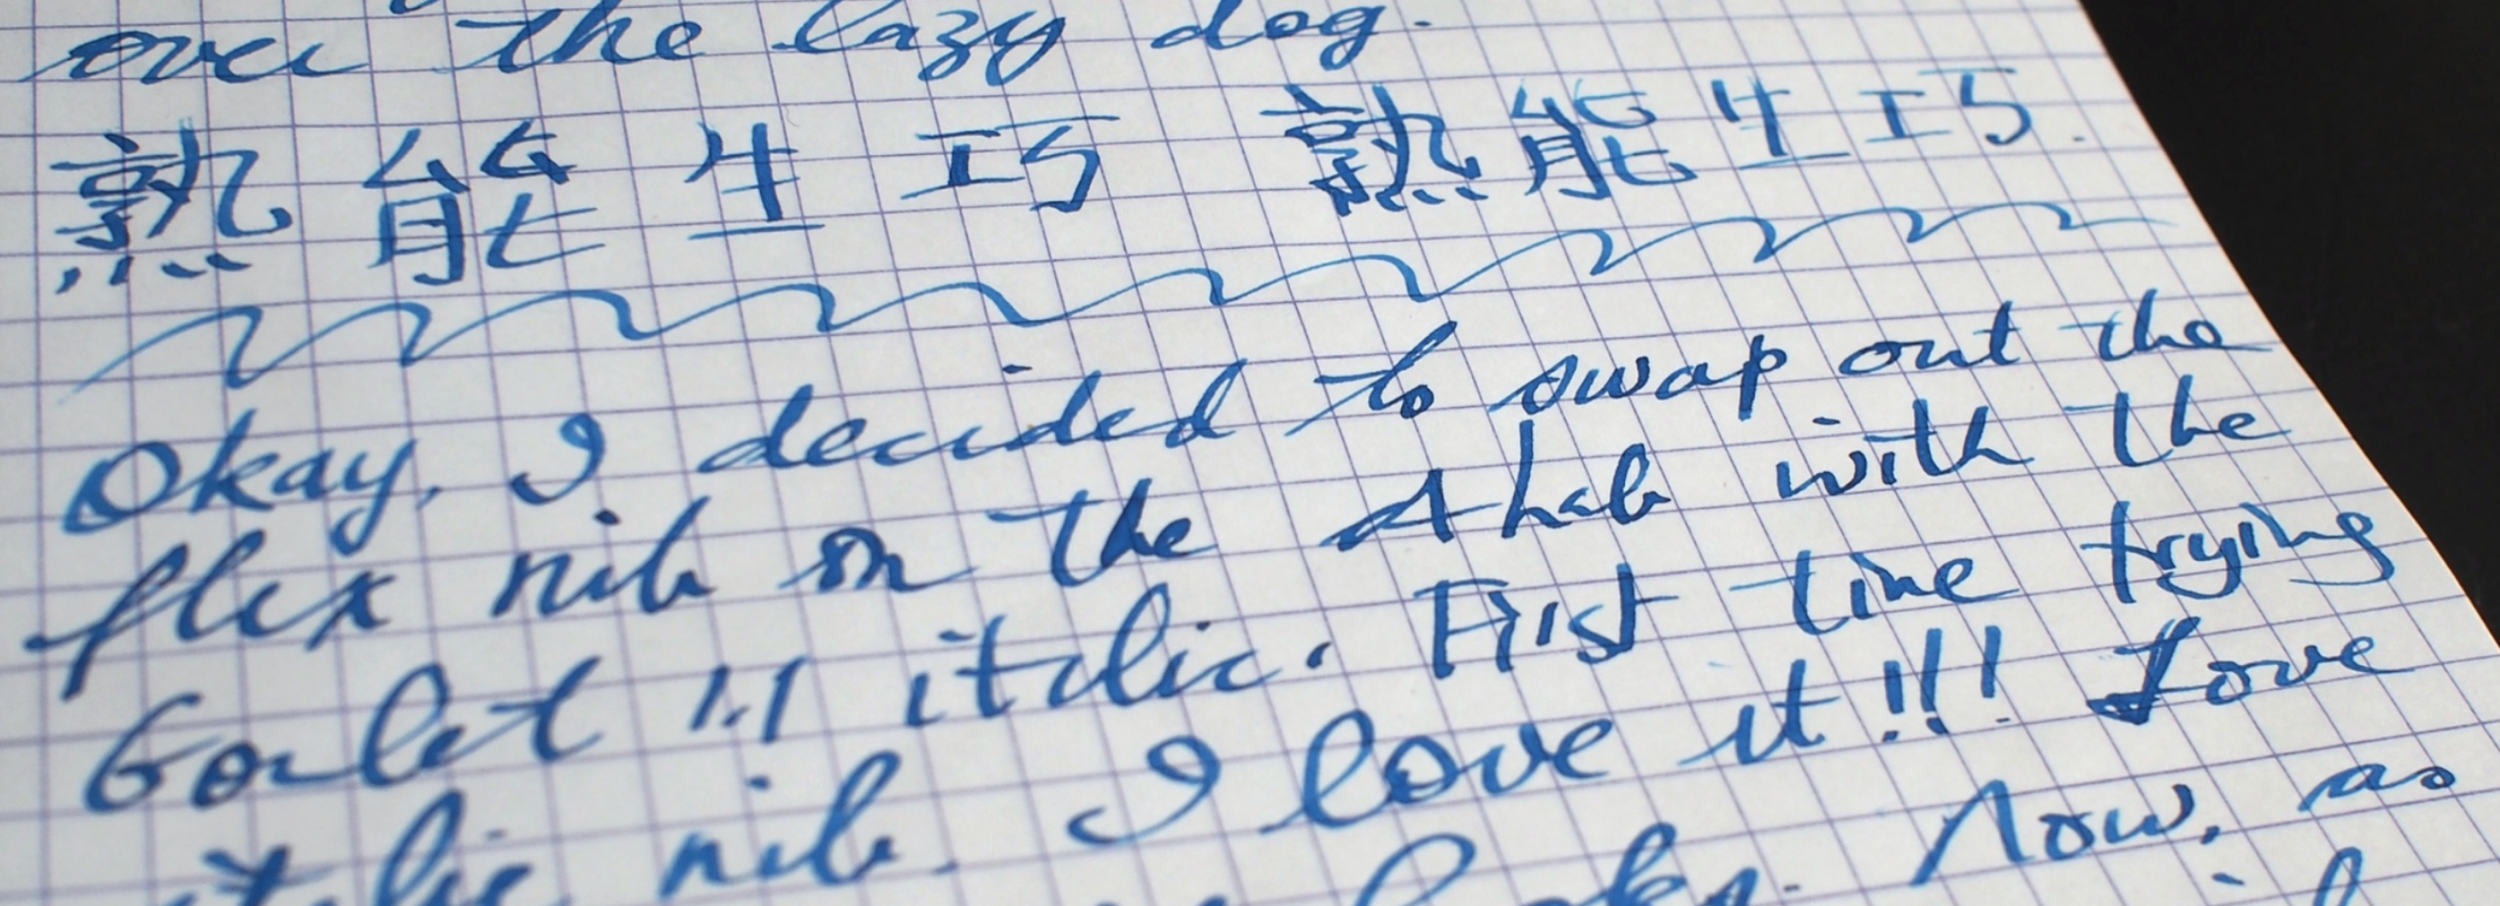 over the lazy dog.
熟能生巧 熟能生巧.
Okay, I decided to swap out the
flex nib on the Ahab with the
Goulet 1.1 italic. First time trying
italic nib. I love it!!! Love
looks. Now, as